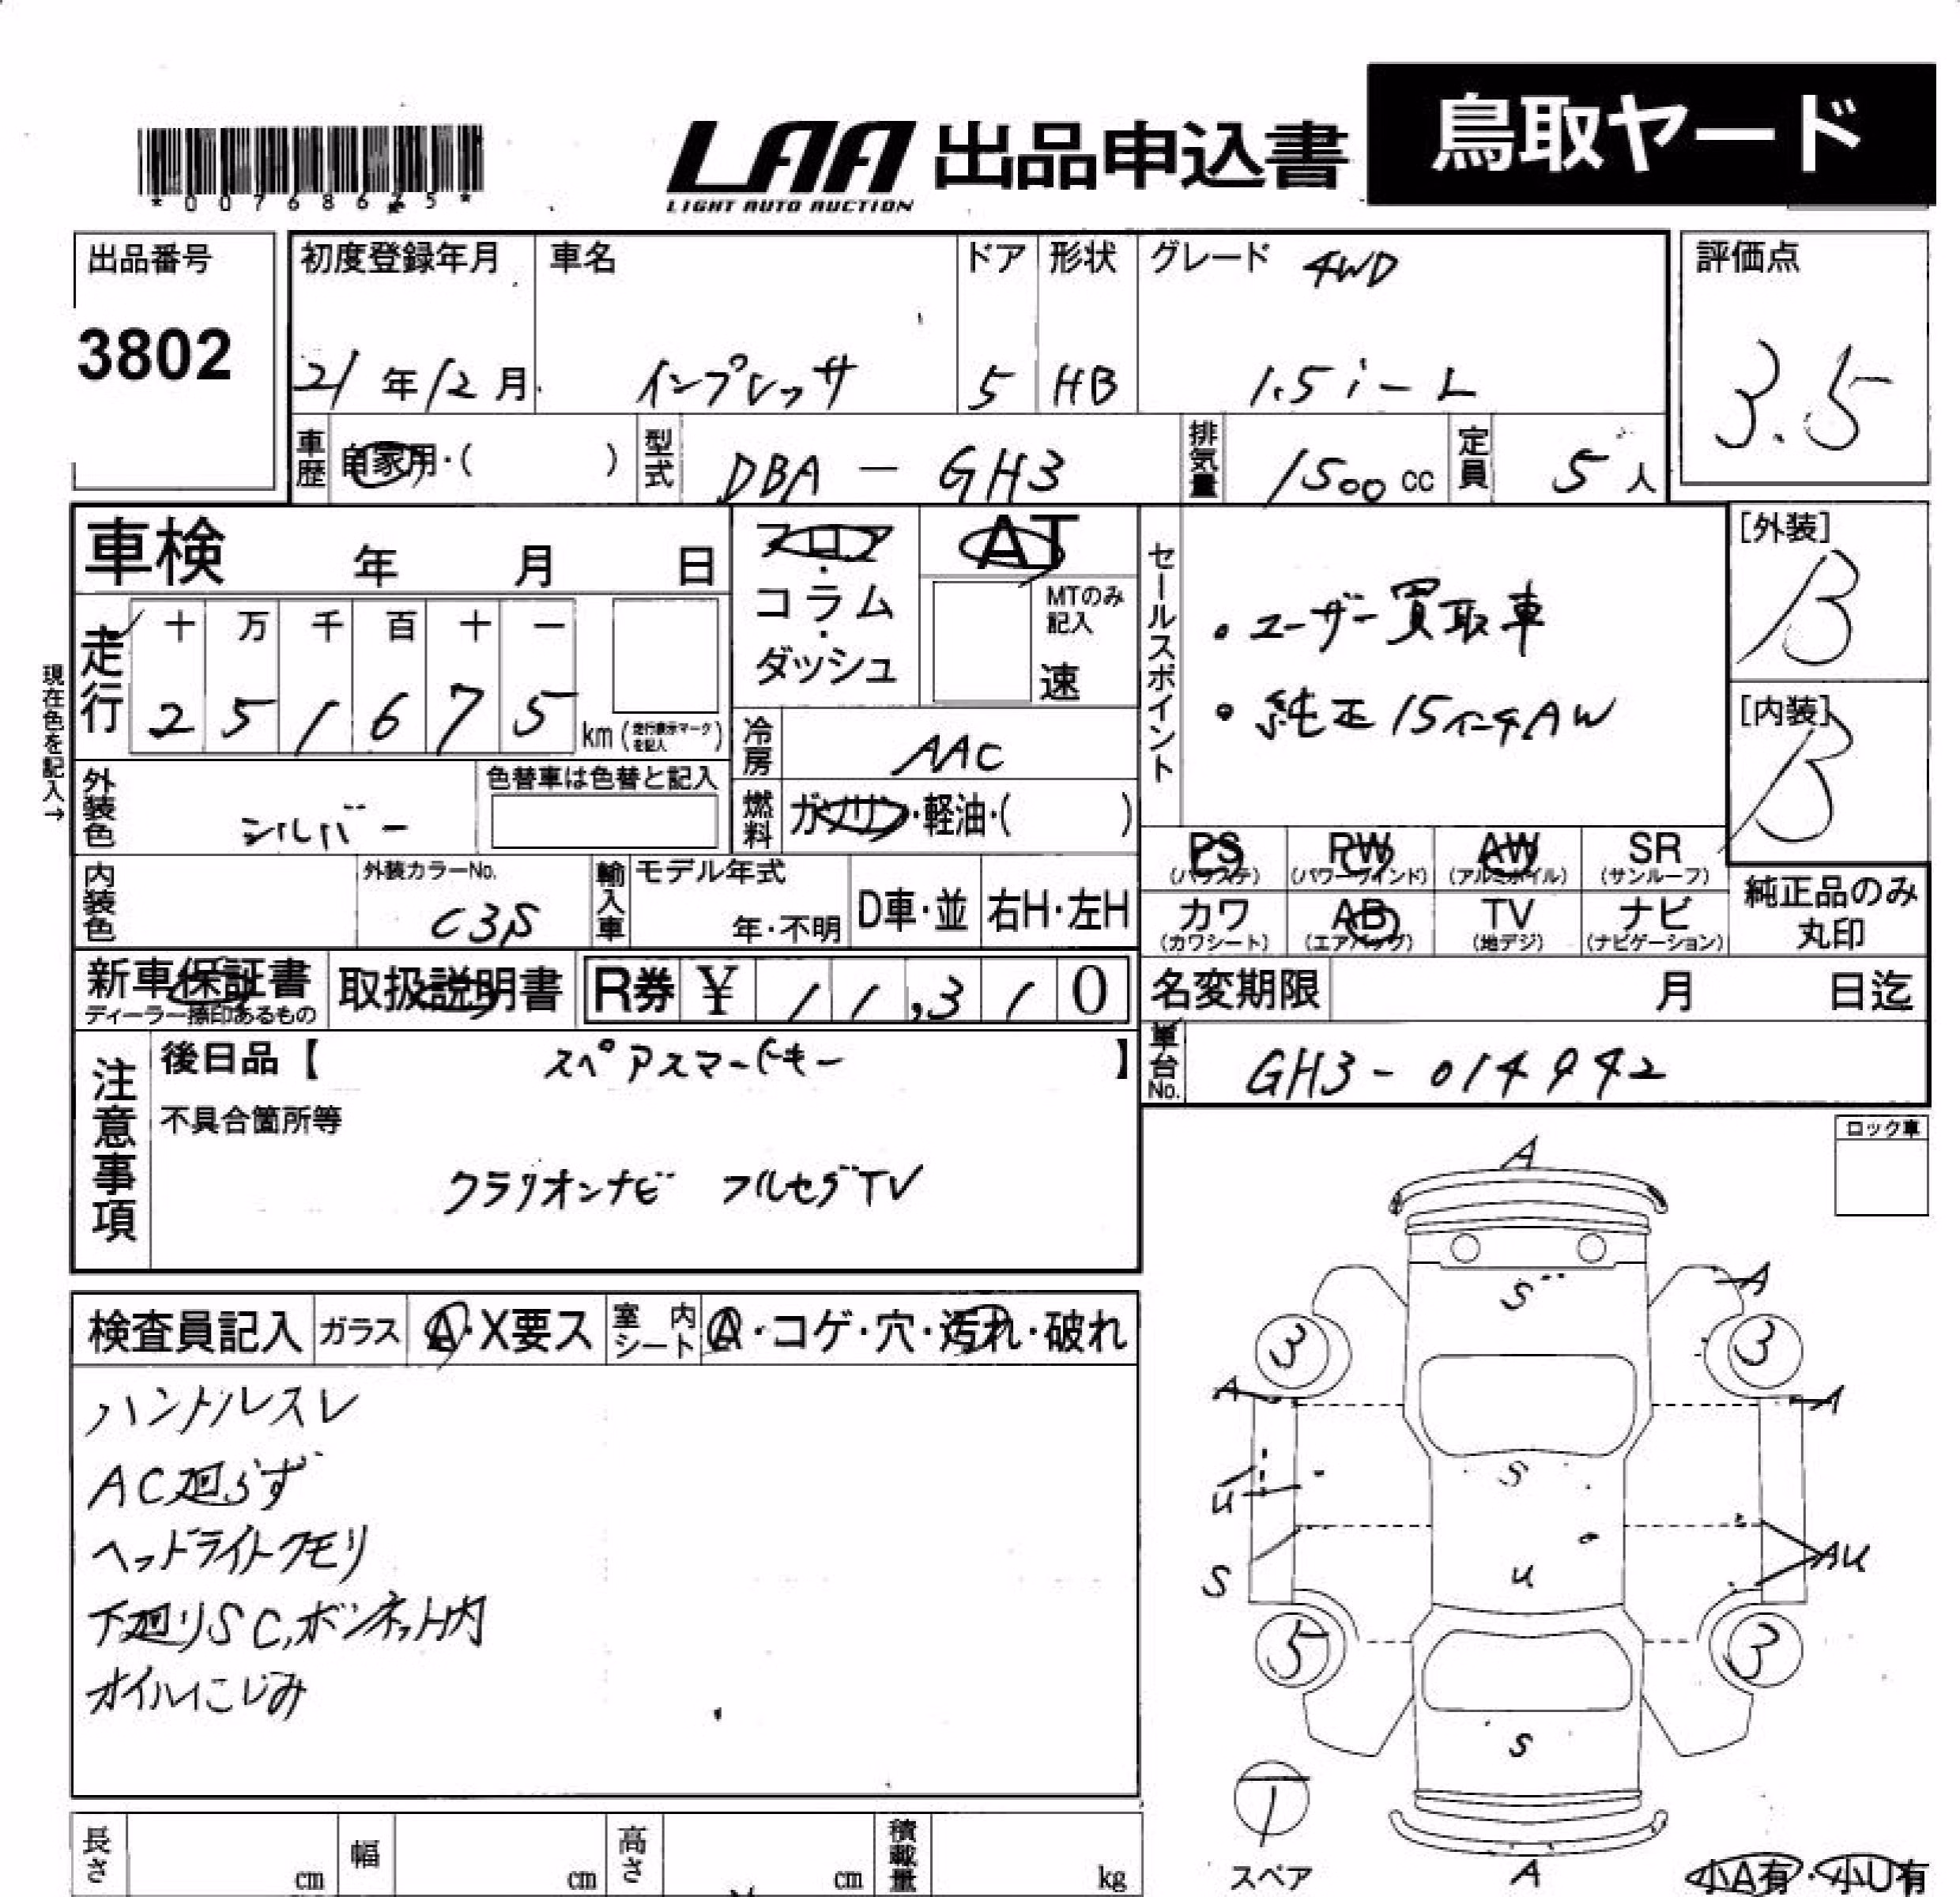 鳥取ヤード
LAA 出品申込書
LIGHT AUTO AUCTION
出品番号
3802
初度登録年月
21年12月
車名
インプレッサ
ドア
5
形状
HB
グレード 4WD
1.5i-L
評価点
3.5
車歴
自家用・( )
型式
DBA-GH3
排気量
1500cc
定員
5人
車検 年 月 日
フロア・コラム・ダッシュ
AT
MTのみ記入
速
セールスポイント
・ユーザー買取車
・純正15インチAW
[外装]
B
[内装]
B
現在色を記入→
走行
十 万 千 百 十 一
2 5 1 6 7 5 km (走行表示マークを記入)
冷房
AAC
燃料
ガソリン・軽油・( )
外装色
シルバー
色替車は色替と記入
内装色
外装カラーNo.
C3S
輸入車
モデル年式
年・不明
D車・並
右H・左H
PS (パワステ)
PW (パワーウインド)
AW (アルミホイル)
SR (サンルーフ)
カワ (カワシート)
AB (エアバッグ)
TV (地デジ)
ナビ (ナビゲーション)
純正品のみ丸印
新車保証書
ディーラー捺印あるもの
取扱説明書
R券 ¥ 11,310
名変期限 月 日迄
車台No.
GH3-014942
注意事項
後日品【 スペアスマートキー 】
不具合箇所等
クラリオンナビ フルセグTV
ロック車
検査員記入
ガラス A・X要ス
室内シート A・コゲ・穴・汚れ・破れ
ハンドルスレ
AC廻らず
ヘッドライトクモリ
下廻りSC,ボンネット内
オイルにじみ
A
S
A
3
3
A
A
S
U
S
U
AU
5
3
S
スペア
A
小A有・小U有
長さ cm
幅 cm
高さ cm
積載量 kg